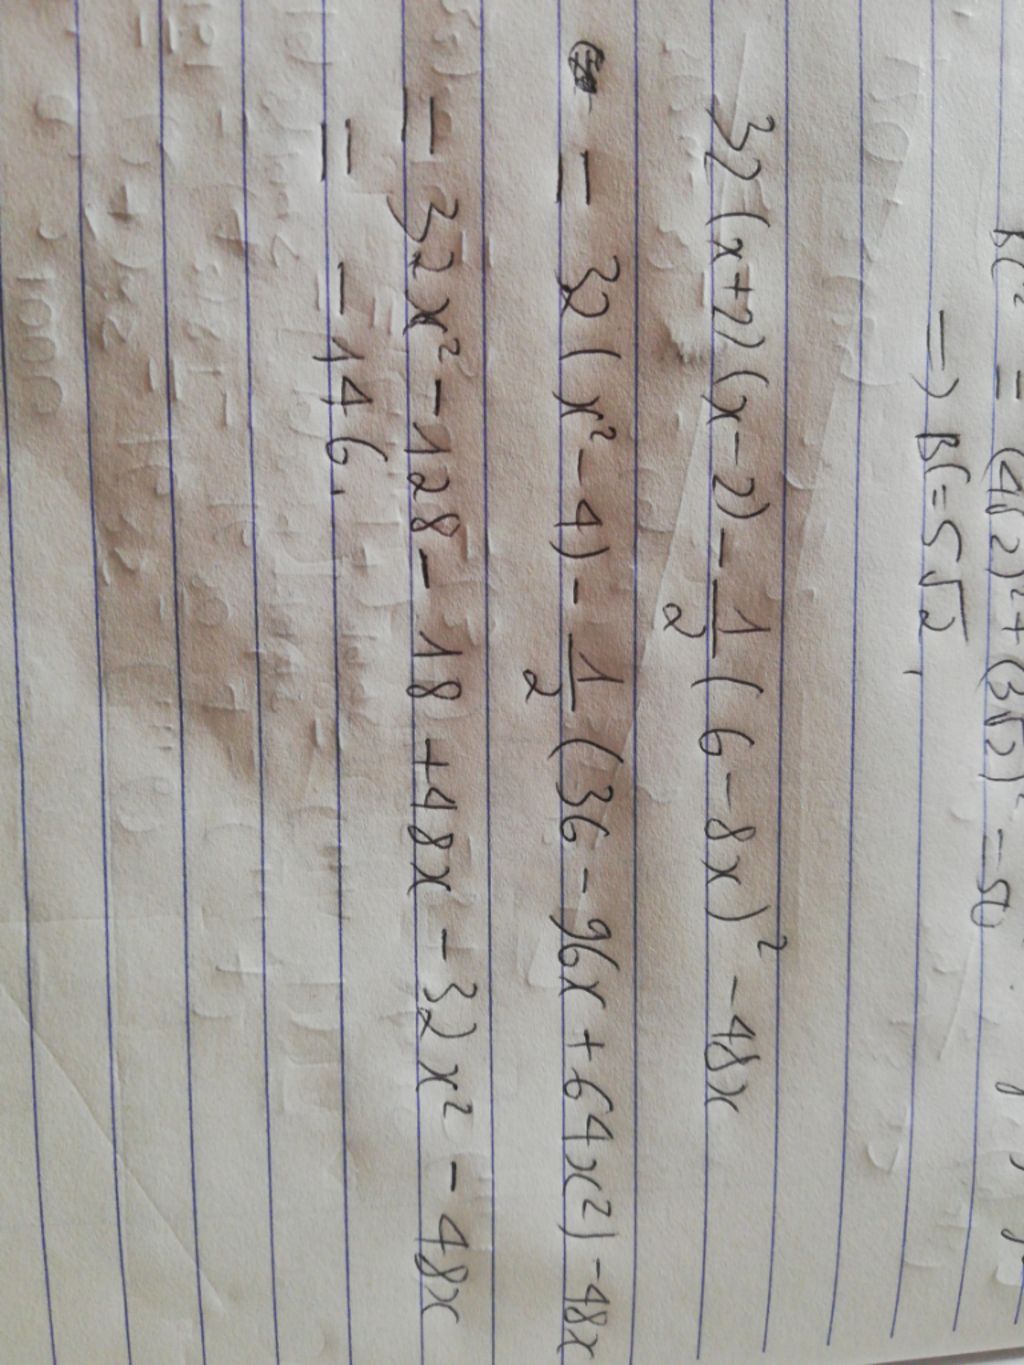 BC² = (4√2)² + (3√2)² = 50
=> BC = 5√2
32(x+2)(x-2) - 1/2 (6-8x)² - 48x
= 32(x²-4) - 1/2 (36 - 96x + 64x²) - 48x
= 32x² - 128 - 18 + 48x - 32x² - 48x
= -146.